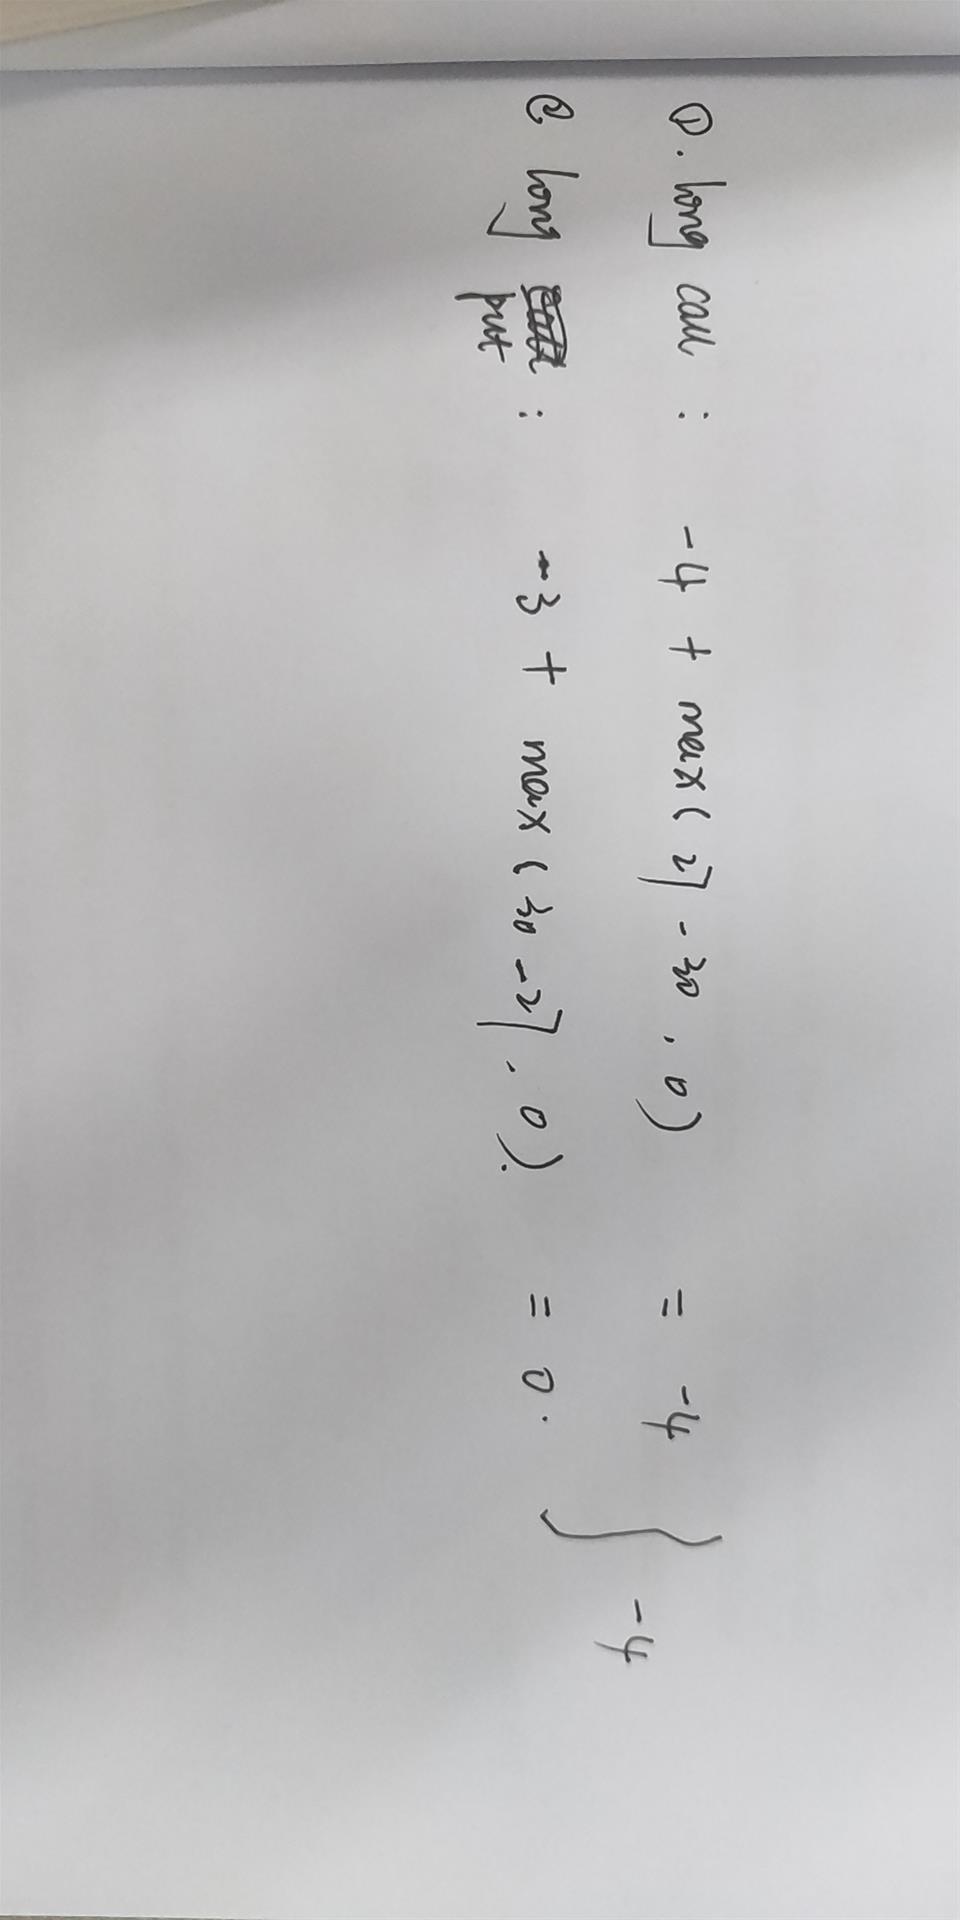 ①. long call : -4 + max ( 27 - 30 , 0 ) = -4
② long put : -3 + max ( 30 - 27 , 0 ). = 0 .
} -4